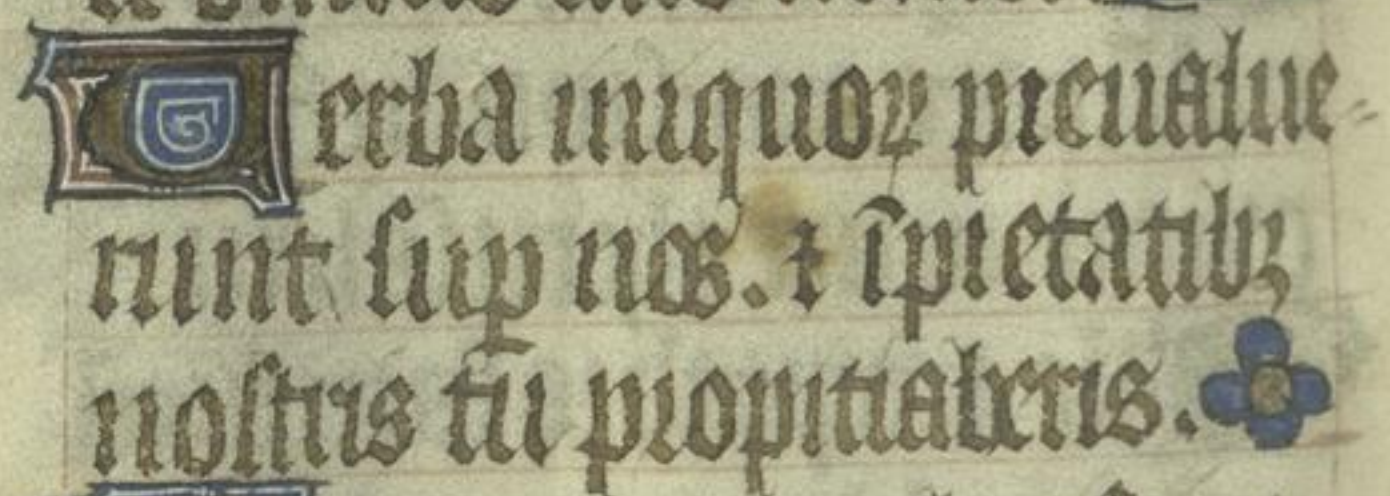 Verba iniquoꝝ preualue-
runt suꝑ nos. ⁊ īpietatibꝫ
nostris tu propitiaberis.